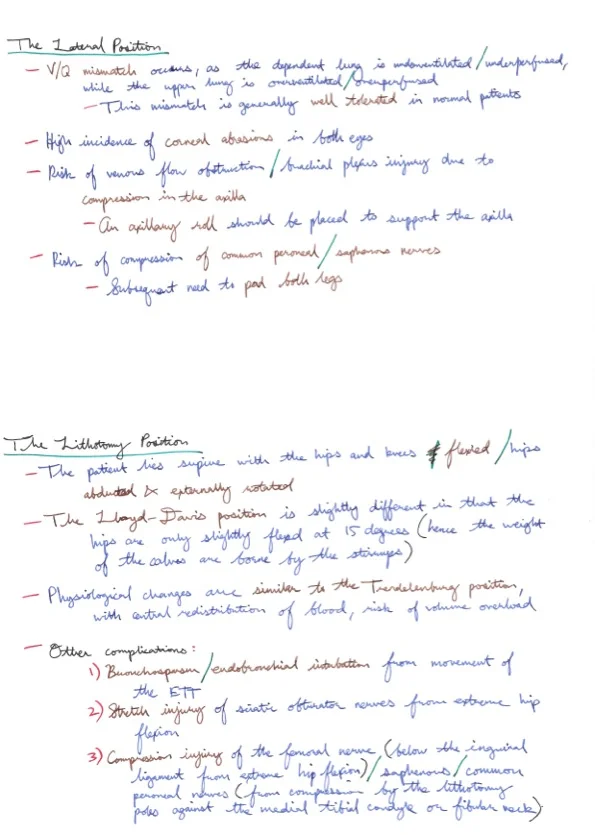 The Lateral Position
— V/Q mismatch occurs, as the dependent lung is underventilated/underperfused,
while the upper lung is overventilated/overperfused
— This mismatch is generally well tolerated in normal patients
— High incidence of corneal abrasions in both eyes
— Risk of venous flow obstruction/brachial plexus injury due to
compression in the axilla
— An axillary roll should be placed to support the axilla
— Risk of compression of common peroneal/saphenous nerves
— Subsequent need to pad both legs
The Lithotomy Position
— The patient lies supine with the hips and knees flexed/hips
abducted & externally rotated
— The Lloyd-Davis position is slightly different in that the
hips are only slightly flexed at 15 degrees (hence the weight
of the calves are borne by the stirrups)
— Physiological changes are similar to the Trendelenburg position,
with central redistribution of blood, risk of volume overload
— Other complications:
1) Bronchospasm/endobronchial intubation from movement of
the ETT
2) Stretch injury of sciatic obturator nerves from extreme hip
flexion
3) Compression injury of the femoral nerve (below the inguinal
ligament from extreme hip flexion)/saphenous/common
peroneal nerves (from compression by the lithotomy
poles against the medial tibial condyle or fibular neck)